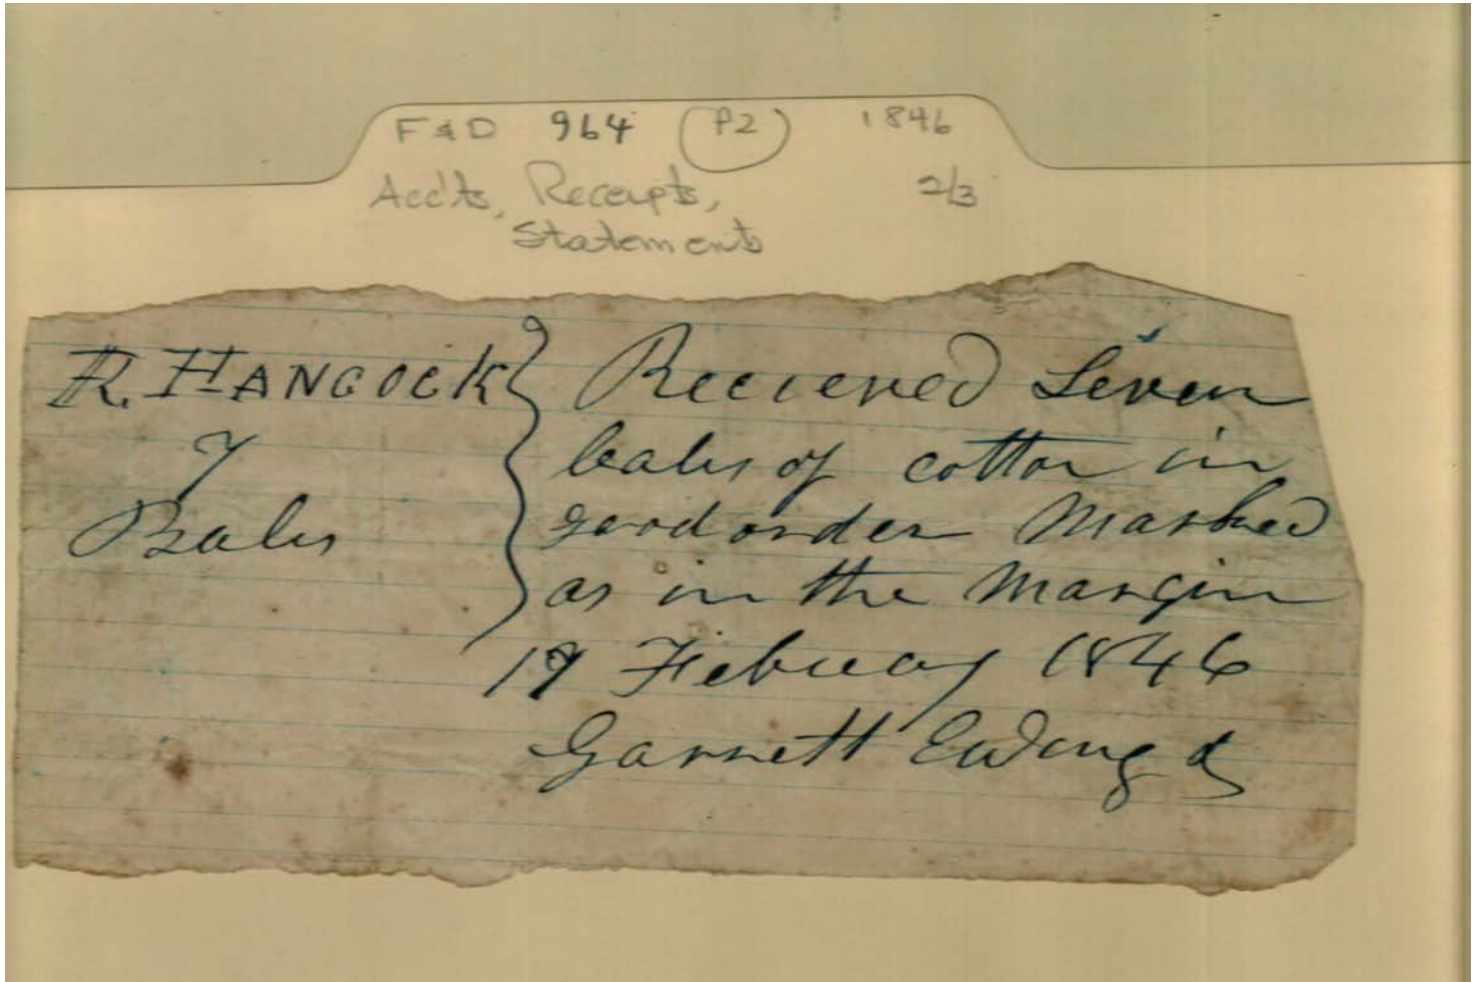 F & D 964 (P2) 1846
Acc'ts, Receipts, 2/3
Statements
R. HANCOCK
7
Bales
Recieved Seven
bales of cotton in
good order Marked
as in the Margin
19 Febuary 1846
Garnett Ewing &